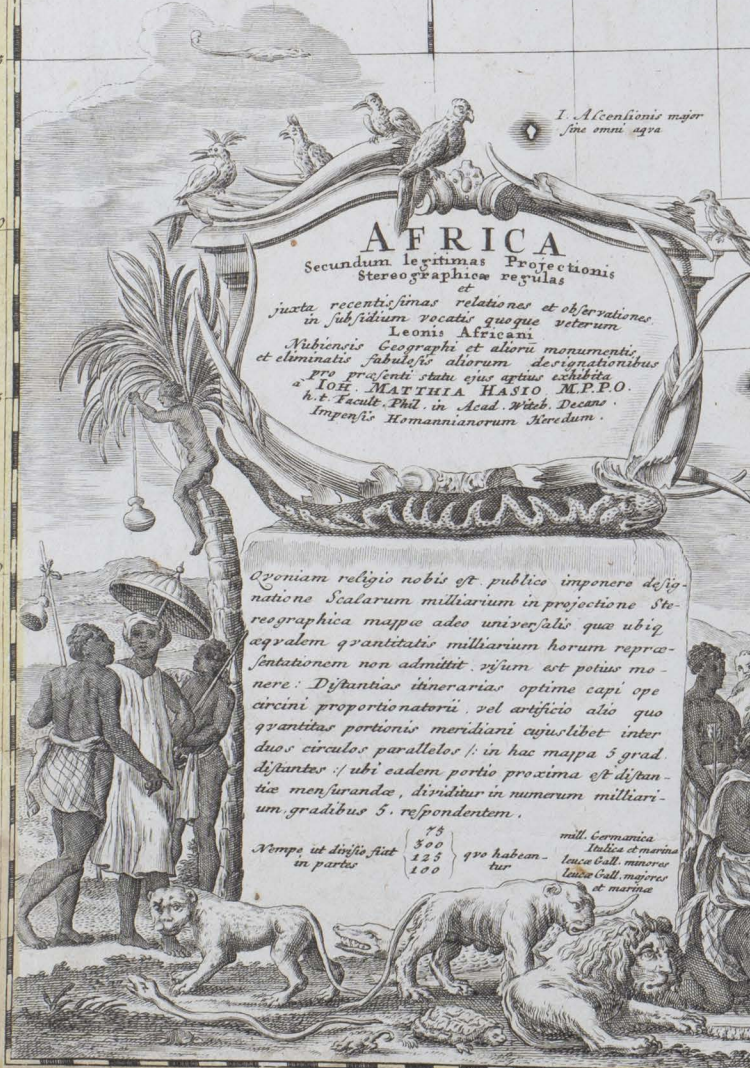 I. Ascensionis major
sine omni aqva
AFRICA
Secundum legitimas Projectionis
Stereographicæ regulas
et
juxta recentissimas relationes et observationes
in subsidium vocatis quoque veterum
Leonis Africani
Nubiensis Geographi et aliorū monumentis
et eliminatis fabulosis aliorum designationibus
pro præsenti statu ejus aptius exhibita
a IOH. MATTHIA HASIO M.P.P.O.
h.t. Facult. Phil. in Acad. Witeb. Decano.
Impensis Homannianorum Heredum.
Qvoniam religio nobis est publice imponere desig-
natione Scalarum milliarium in projectione Ste-
reographica mappæ adeo universalis quæ ubiq
æqvalem qvantitatis milliarium horum repræ-
sentationem non admittit, visum est potius mo-
nere: Distantias itinerarias optime capi ope
circini proportionatorii, vel artificio alio quo
qvantitas portionis meridiani cujuslibet inter
duos circulos parallelos /: in hac mappa 5 grad.
distantes :/ ubi eadem portio proxima est distan-
tiæ mensurandæ, dividitur in numerum milliari-
um, gradibus 5. respondentem.
Nempe, ut divisio fiat
in partes
75
300
125
100
qvo habean-
tur
mill. Germanica
Italica et marina
leucæ Gall. minores
leucæ Gall. majores
et marinæ